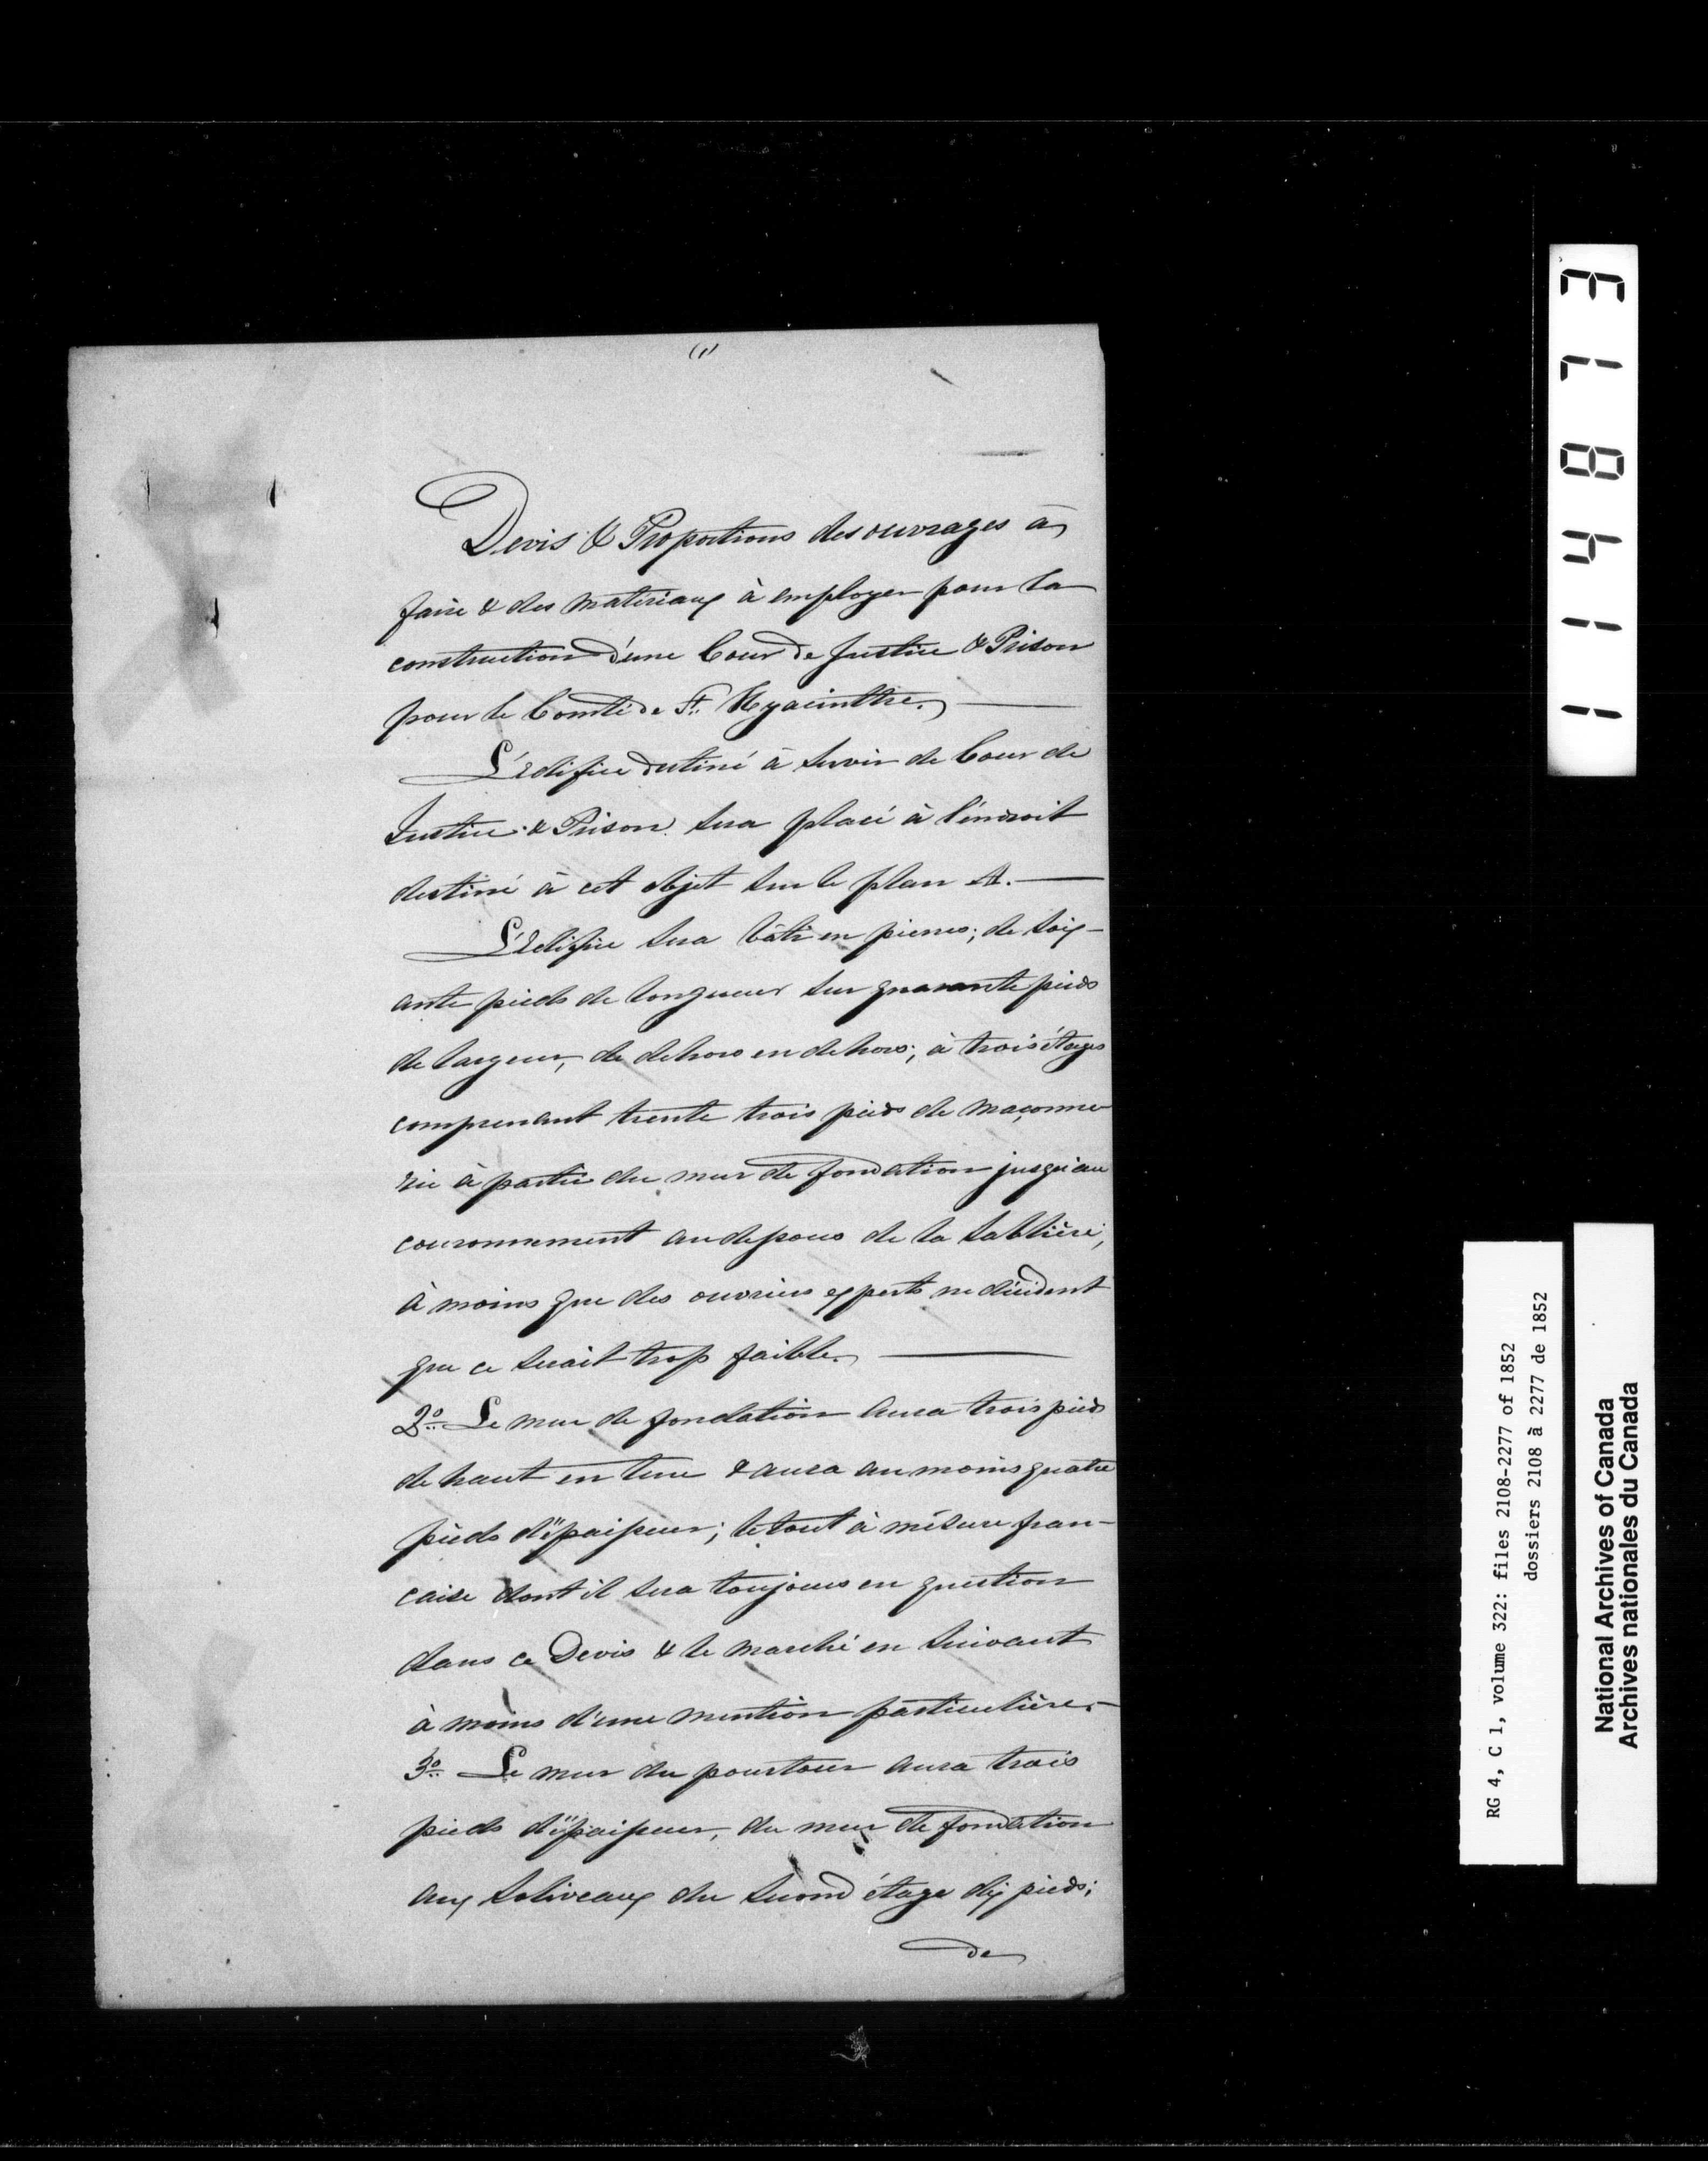 (1)
Devis & Proportions des ouvrages à
faire & des materiaux à employer pour la
construction d'une Cour de Justice & Prison
pour le Comté de St. Hyacinthe. —
L'Edifice destiné à servir de Cour de
Justice & Prison sera placé à l'endroit
destiné à cet objet sur le plan A. —
L'Edifice sera bâti en pierres; de soix-
ante pieds de longueur sur quarante pieds
de largeur, de dehors en dehors; à trois étages
comprenant trente trois pieds de maçonne-
rie à partir du mur de fondation jusqu'au
couronnement au dessous de la sablière,
à moins que des ouvriers experts ne décident
que ce serait trop faible. —
2o. Le mur de fondation aura trois pieds
de haut en terre & aura au moins quatre
pieds d'épaisseur; le tout à mésure fran-
caise dont il sera toujours en question
dans ce Devis & le marché en suivant
à moins d'une mention particulière. -
3o. Le mur du pourtour aura trois
pieds d'épaisseur, du mur de fondation
aux soliveaux du second étage dix pieds;
de
114873
RG 4, C 1, volume 322: files 2108-2277 of 1852
dossiers 2108 à 2277 de 1852
National Archives of Canada
Archives nationales du Canada